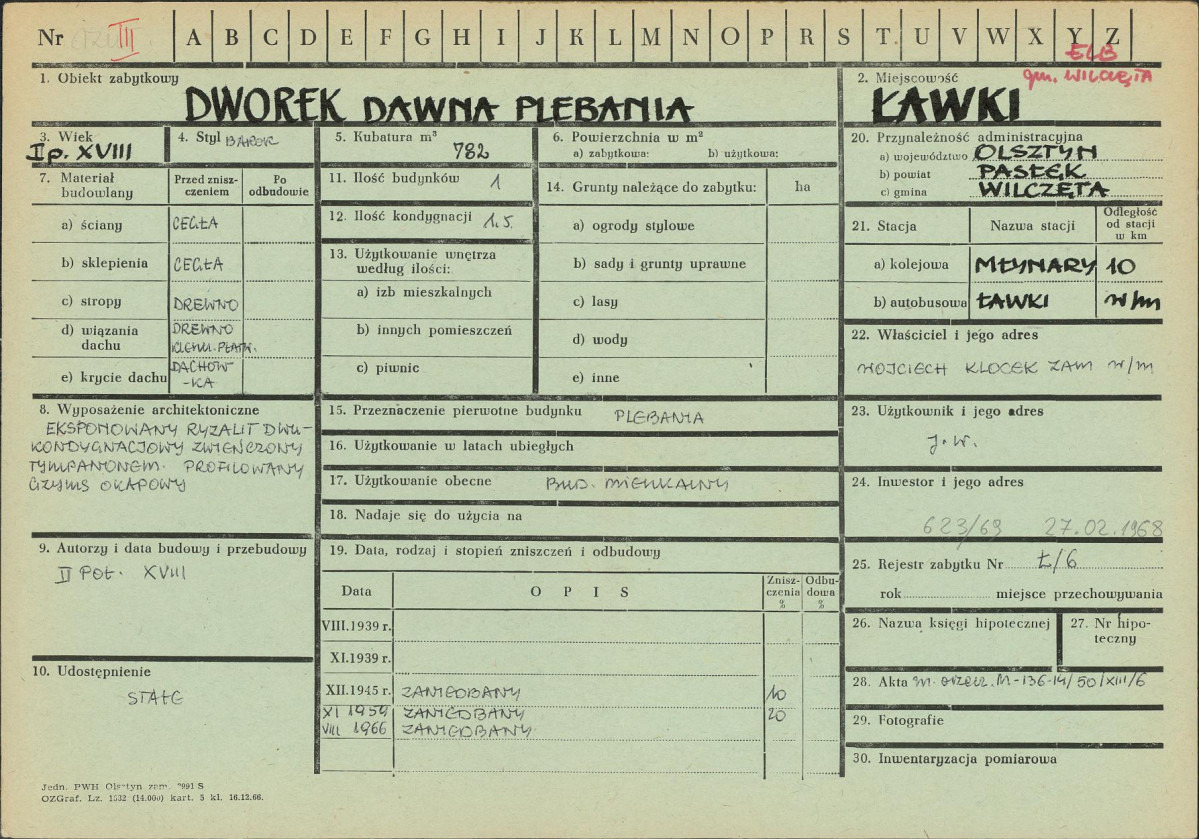 Nr III A B C D E F G H I J K L M N O P R S T U V W X Y Z
ELB
gm. WILCZĘTA
1. Obiekt zabytkowy
DWOREK DAWNA PLEBANIA
2. Miejscowość
ŁAWKI
3. Wiek
II p. XVIII
4. Styl BAROK
5. Kubatura m³
782
6. Powierzchnia w m²
a) zabytkowa: b) użytkowa:
7. Materiał budowlany
Przed zniszczeniem
Po odbudowie
a) ściany CEGŁA
b) sklepienia CEGŁA
c) stropy DREWNO
d) wiązania dachu DREWNO
e) krycie dachu DACHÓW-
-KA
8. Wyposażenie architektoniczne
EKSPONOWANY RYZALIT DWU-
KONDYGNACJOWY ZWIEŃCZONY
TYMPANONEM. PROFILOWANY
GZYMS OKAPOWY
9. Autorzy i data budowy i przebudowy
II POŁ. XVIII
10. Udostępnienie
STAŁE
11. Ilość budynków 1
12. Ilość kondygnacji 1.5.
13. Użytkowanie wnętrza
według ilości:
a) izb mieszkalnych
b) innych pomieszczeń
c) piwnic
14. Grunty należące do zabytku: ha
a) ogrody stylowe
b) sady i grunty uprawne
c) lasy
d) wody
e) inne
15. Przeznaczenie pierwotne budynku PLEBANIA
16. Użytkowanie w latach ubiegłych
17. Użytkowanie obecne BUD. MIESZKALNY
18. Nadaje się do użycia na
19. Data, rodzaj i stopień zniszczeń i odbudowy
Data OPIS Zniszczenia % Odbudowa %
VIII.1939 r.
XI.1939 r.
XII.1945 r. ZANIEDBANY 10
XI 1959 ZANIEDBANY 20
VIII 1966 ZANIEDBANY.
20. Przynależność administracyjna
a) województwo OLSZTYN
b) powiat PASŁĘK
c) gmina WILCZĘTA
21. Stacja Nazwa stacji Odległość od stacji w km
a) kolejowa MŁYNARY 10
b) autobusowa ŁAWKI w/m
22. Właściciel i jego adres
WOJCIECH KLOCEK ZAM W/M
23. Użytkownik i jego adres
J.W.
24. Inwestor i jego adres
623/69 27.02.1968
25. Rejestr zabytku Nr Ł/6
rok miejsce przechowywania
26. Nazwa księgi hipotecznej
27. Nr hipoteczny
28. Akta M-136-14/50/XIII/6
29. Fotografie
30. Inwentaryzacja pomiarowa
Jedn. PWH Olsztyn zam. 2991 S
OZGraf. Lz. 1532 (14.000) kart. 5 kl. 16.12.66.